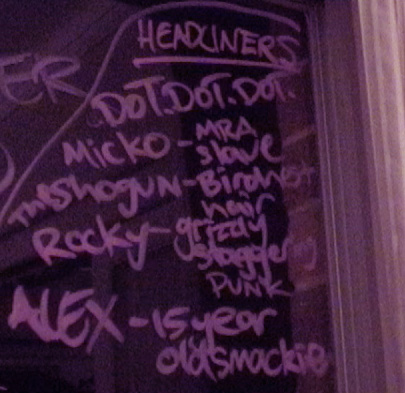 ER
HEADLINERS
DOT.DOT.DOT.
MICKO - MRA
Slave
THE SHOGUN - Birdnest
hair
ROCKY - grizzly
staggering
PUNK
ALEX - 15 year
old smackie